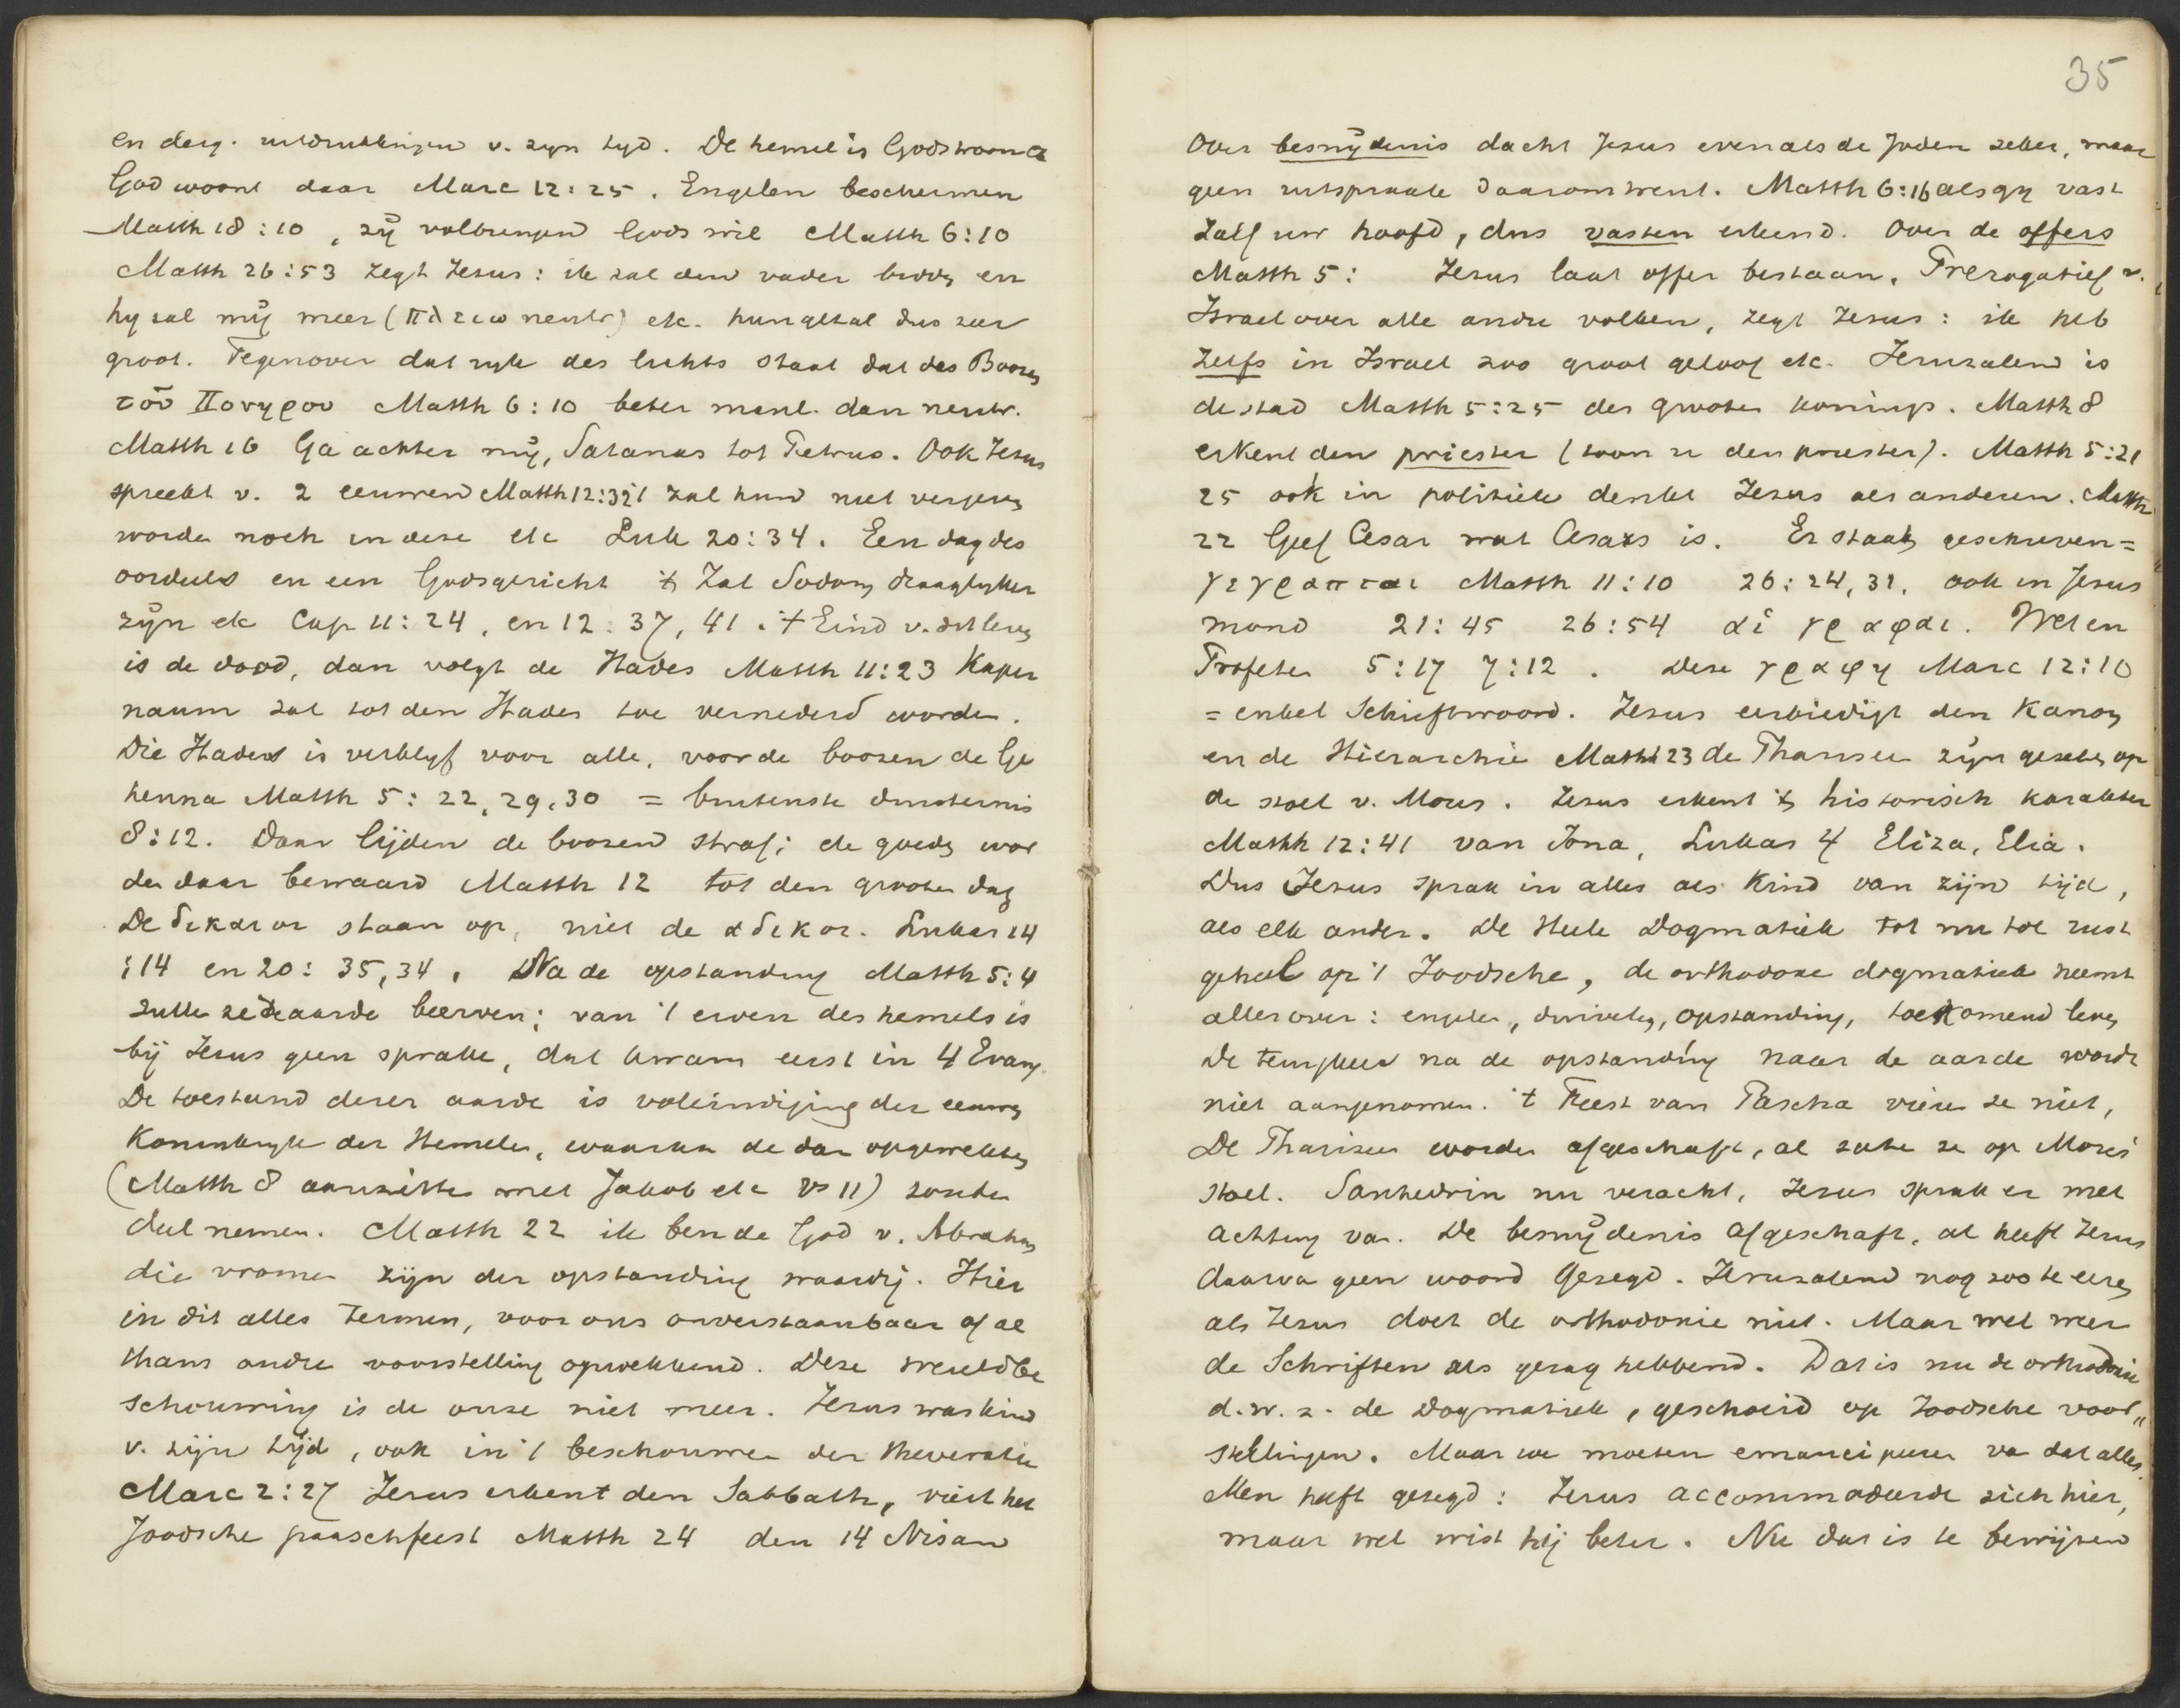 en derg. uitdrukkingen v. zyn tyd. De hemel is Gods woon
God woont daar Marc 12:25. Engelen beschermen
Matth 18:10, zÿ volbrengen Gods wil Matth 6:10
Matth 26:53 zegt Jezus: ik zal den vader bidden en
hy zal mÿ meer (πλειω neutr) etc. hun getal dus zeer
groot. Tegenover dat ryk des lichts staat dat des Boozen
τοῦ Πονηρου Matth 6:10 beter manl. dan neutr.
Matth 16 Ga achter mÿ, Satanas tot Petrus. Ook Jezus
spreekt v. 2 eeuwen Matth 12:32 't zal hun niet vergeven
worden noch in deze etc Luk 20:34. Een dag des
oordeels en een Godsgericht 't Zal Sodom draaglyker
zÿn etc Cap 11:24, en 12:37, 41. 't Eind v. dit leven
is de dood, dan volgt de Hades Matth 11:23 Kaper
naum zal tot den Hades toe vernederd worden.
Die Hades is verblyf voor alle, voor de boozen de Ge
henna Matth 5:22, 29, 30 = buitenste duisternis
8:12. Daar lijden de boozen straf; de goeden wor
den daar bewaard Matth 12 tot den grooten dag
De δικαιοι staan op, niet de αδικοι. Lukas 14
:14 en 20:35, 34. Na de opstanding Matth 5:4
zullen ze de aarde beerven; van 't erven des hemels is
bij Jezus geen sprake, dat kwam eerst in 4 Evang.
De toestand dezer aarde is voleindiging der eeuwen
Koninkryk der Hemelen, waaraan de dan opgewekten
(Matth 8 aanzitten met Jakob etc vs 11) zouden
deel nemen. Matth 22 ik ben de God v. Abraham
die vromen zijn der opstanding waardig. Hier
in dit alles termen, voor ons onverstaanbaar of al
thans andre voorstelling opwekkend. Deze wereldbe
schouwing is de onze niet meer. Jezus was kind
v. zijn tijd, ook in 't beschouwen der theocratie
Marc 2:27 Jezus erkent den Sabbath, viert het
Joodsche paaschfeest Matth 24 den 14 Nisan
35
Over besnÿdenis dacht Jezus evenals de Joden zelver, maar
geen uitspraak daaromtrent. Matth 6:16 als gy vast
zalf uw hoofd, dus vasten erkend. Over de offers
Matth 5: Jezus laat offer bestaan. Prerogatief v.
Israel over alle andre volken, zegt Jezus: ik heb
zelfs in Israel zoo groot geloof etc. Jeruzalem is
de stad Matth 5:25 des grooten konings. Matth 8
erkent den priester (toon u den priester). Matth 5:21
25 ook in politiek denkt Jezus als anderen. Matth
22 Geef Cesar wat Cesars is. Er staat geschreven =
γεγραπται Matth 11:10 26:24, 31. ook in Jesus
mond 21:45 26:54 αἱ γραφαι. Wet en
Profeten 5:17 7:12. Deze γραφη Marc 12:10
= enkel Schriftwoord. Jezus eerbiedigt den Kanon
en de Hierarchie Matth 23 de Pharizeen zÿn gezeten op
de stoel v. Mozes. Jezus erkent 't historisch karakter
Matth 12:41 van Jona, Lukas 4 Eliza, Elia.
Dus Jezus sprak in alles als Kind van zijn tijd,
als elk ander. De Heele Dogmatiek tot nu toe rust
geheel op 't Joodsche, de orthodoxe dogmatiek neemt
alles over: engelen, duivelen, opstanding, toekomend leven
De terugkeer na de opstanding naar de aarde wordt
niet aangenomen. 't Feest van Pascha vieren ze niet,
De Pharizeen worden afgeschaft, al zaten ze op Mozes'
stoel. Sanhedrin nu veracht, Jezus sprak er met
achting van. De besnÿdenis afgeschaft, al heeft Jezus
daarvan geen woord gezegd. Jeruzalem nog zoo te eeren
als Jezus doet de orthodoxie niet. Maar wel weer
de Schriften als gezag hebbend. Dat is nu de orthodoxie
d.w.z. de Dogmatiek, geschoeid op Joodsche voor„
stellingen. Maar we moeten emancipeeren van dat alles.
Men heeft gezegd: Jezus accommodeerde zich hier,
maar wel wist hij beter. Nu dat is te bewijzen